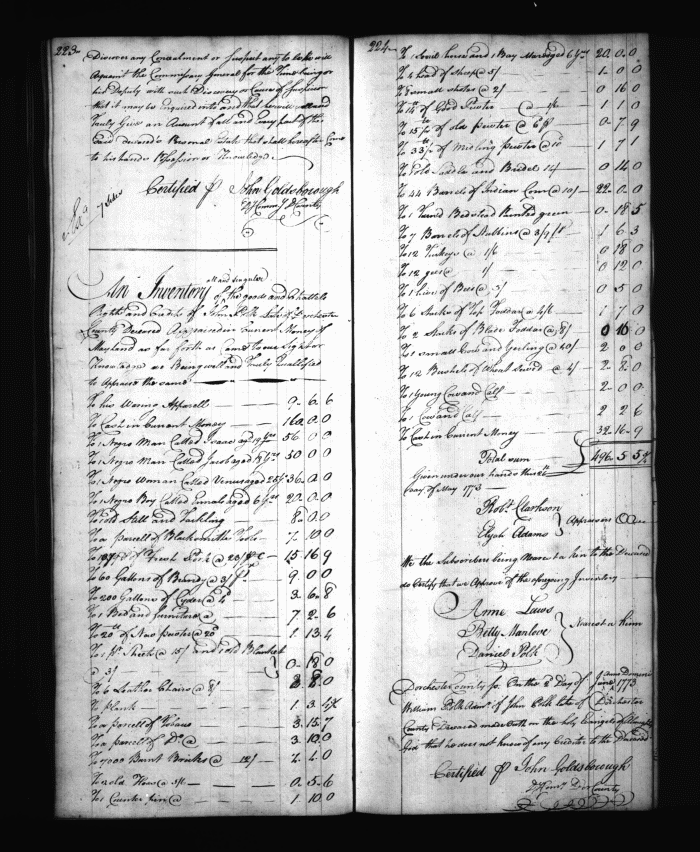 223
Discover any Concealment or suspect any to be he will
Acquaint the Commissary General for the time being or
his Deputy with such Discovery or Cause of suspicion
that it may be enquired into and that he will well and
Truly Give an Account of all and every part of the
said deceased's Personal Estate that shall hereafter Come
to his hands Possession or Knowledge
Certified John Goldsborough
D Commy D County
7 sides
An Inventory all and singular of the goods and Chattels
Rights and Credits of John Polk Late of Dorchester
County Deceased Appraised in Current Money of
Maryland as far forth as Came to our Sight or
Knowledge we Being well and Truly Quallified
to Appraise the same
To his Waring Apparell 9 - 6 - 6
To Cash in Current Money 160 - 0 - 0
To 1 Negro Man Called Isaac aged 19 yrs 56 0 0
To 1 Negro Man Called Jacob aged 17 yrs 50 0 0
To 1 Negro Woman Called Venus aged 25 yrs 36 - 0 - 0
To 1 Negro Boy Called Ennals aged 6 yrs 20 - 0 - 0
To 1 old Still and Tackling 8 - 0 - 0
To a parcell of Blacksmiths Tools 7 - 10 - 0
of Fresh Pork @ 25/ 15 16 9
To 60 Gallons of Brandy @ 3/ 9 0 0
To 200 Gallons of Cyder @ 4d 3 - 6 - 8
To 1 Bed and furniture @ 7 2 - 6
To 20 lb of New pewter @ 20d 1 - 13 - 4
To 1 pr Sheets @ 15/ and 1 old Blanket
@ 3/ 0 - 18 0
To 6 Leather Chairs @ 8/ 2 8 - 0
To plank 1 - 3 - 4
To a parcell of Tobacco 3 - 15 - 7
To a parcell of Do @ 3 - 10 - 0
To 7000 Burnt Bricks @ 12/ 4 - 4 - 0
To 2 old Hows @ 0 - 5 - 6
To 1 Counter pin @ 1 - 10 0
224
To 1 Sorril horse and 1 Bay Mare aged 6 yrs 20 - 0 - 0
To 4 head of Sheep @ 5/ 1 - 0 0
To 8 small shotes @ 2/ 0 16 0
To 14 lb of Good Pewter @ 1/6 1 1 0
To 15 1/2 lb of old pewter @ 6d 0 - 7 9
To 33 1/2 lb of Midling pewter @ 10d 1 7 1
To 1 old Saddle and Bridel 14 0 14 0
To 44 Barrels of Indian Corn @ 10/ 22 - 0 - 0
To 1 Turnd Bedstead Painted green 0 - 18 5
To 7 Barrels of Nubbins @ 3/9 1 6 3
To 12 Turkeys @ 1/6 0 18 0
To 12 gees @ 1/ 0 12 0
To 1 hive of Bees @ 5/ 0 5 0
To 6 Stacks of Top Fodder @ 4/6 1 7 0
To 2 Stacks of Blade Fodder @ 8/ 0 16 - 0
To 1 small and Gerling @ 40/ 2 0 0
To 12 Bushels of Wheat Sowed @ 4/ 2 - 8 0
To 1 Young Cow and Calf 2 - 0 0
To 1 Cow and Calf 2 2 6
To Cash in Current Money 32 - 16 - 9
Total sum 496 5 5 1/4
Given under our hands this
Day of May 1773
Robt Clarkson
Elijah Adams
Appraisers
We the Subscribers being Near a Kin to the Deceased
do Certify that we Approve of the aforegoing Inventory
Anne Laws
Betty Manlove
Daniel Polk
Nearest a Kin
Dorchester County ss. On the 2 Day of June Anno Domini 1773
William Polk Admr of John Polk Late of Dorchester
County Deceased made Oath on the holy Evangels of Almighty
God that he does not know of any Creditor to the Deceased
Certified John Goldsborough
D Commy Dor County